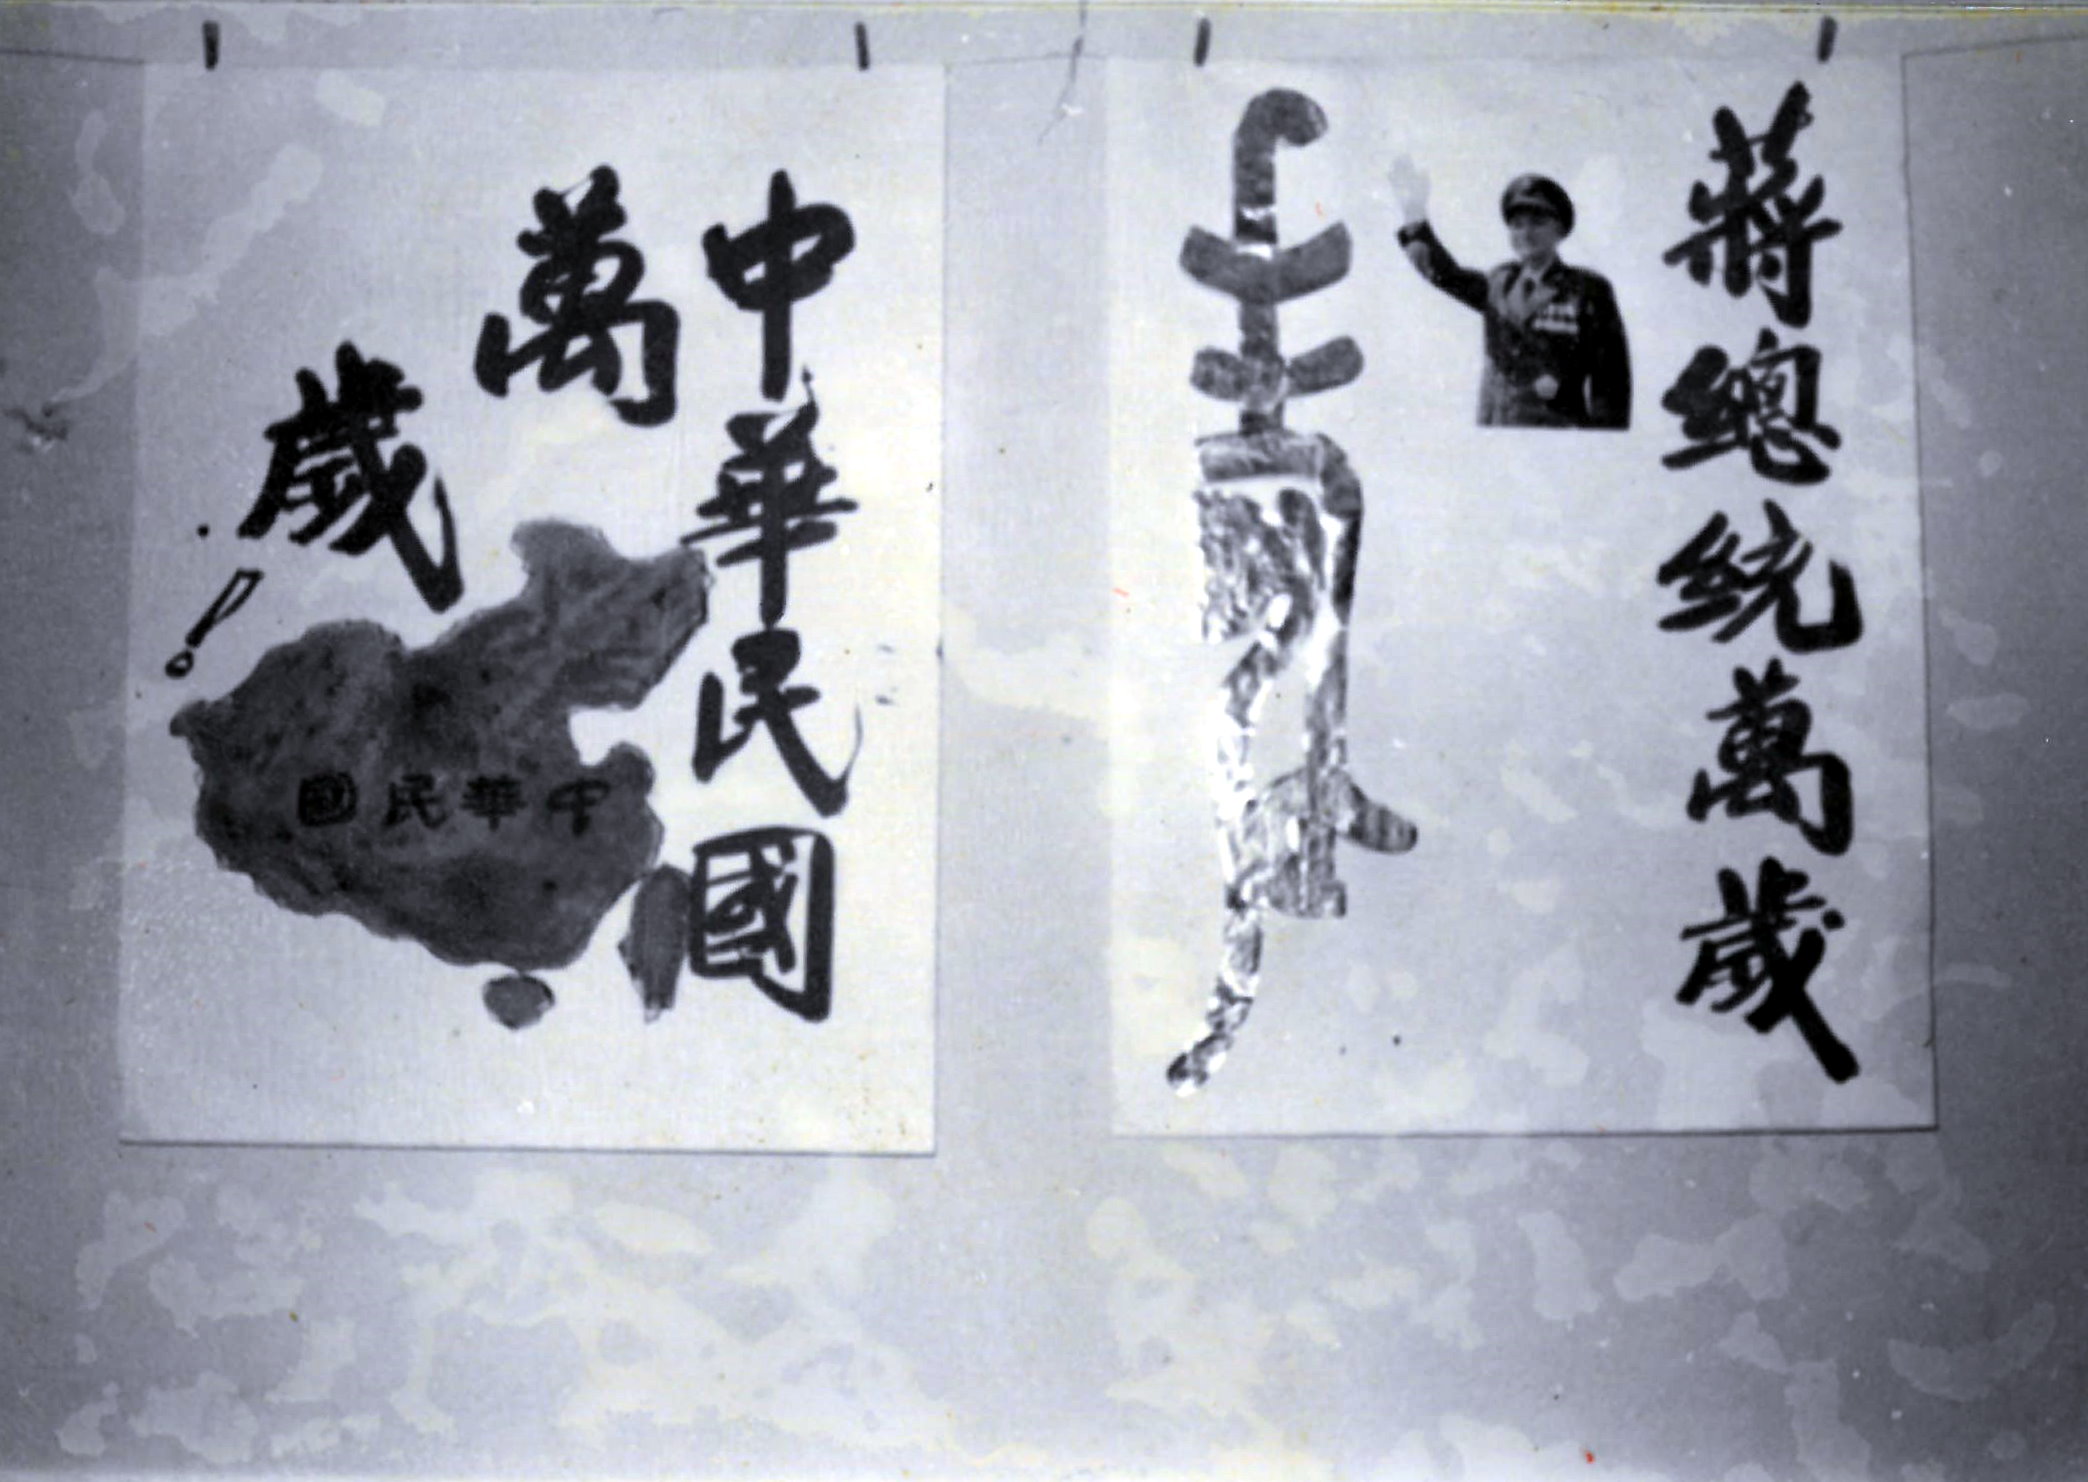 蔣總統萬歲
中華民國
萬歲!
中華民國